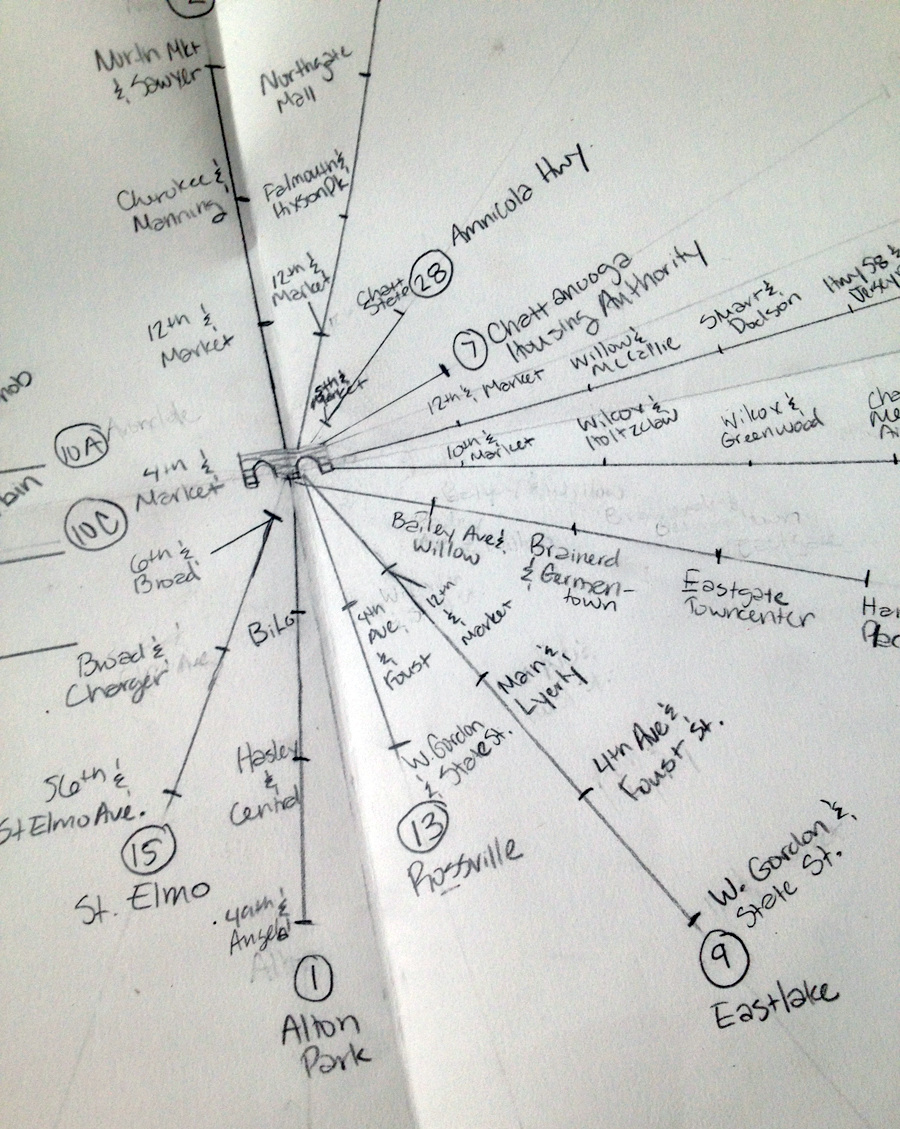 North Mkt
& Sawyer
Northgate
Mall
Cherokee &
Manning
Falmouth &
Hixson Pk
12th &
Market
12th &
Market
Chatt
State
28
Amnicola Hwy.
7
Chattanooga
Housing Authority
5th &
Market
12th & Market
Willow &
McCallie
Smart &
Dodson
Hwy 58 &
10A
4th &
Market
10th &
Market
Wilcox &
Holtzclaw
Wilcox &
Greenwood
10C
bin
6th &
Broad
Bailey Ave &
Willow
Brainerd
& Germen-
town
Eastgate
Towncenter
Broad &
Charger
BiLo
4th
Ave
&
Foust
12th
&
Market
Main &
Lyerly
4th Ave &
Foust St.
56th &
St Elmo Ave.
15
St. Elmo
Hasley
&
Central
W. Gordon
& State St.
13
Rossville
W. Gordon &
State St.
9
Eastlake
1
Alton
Park